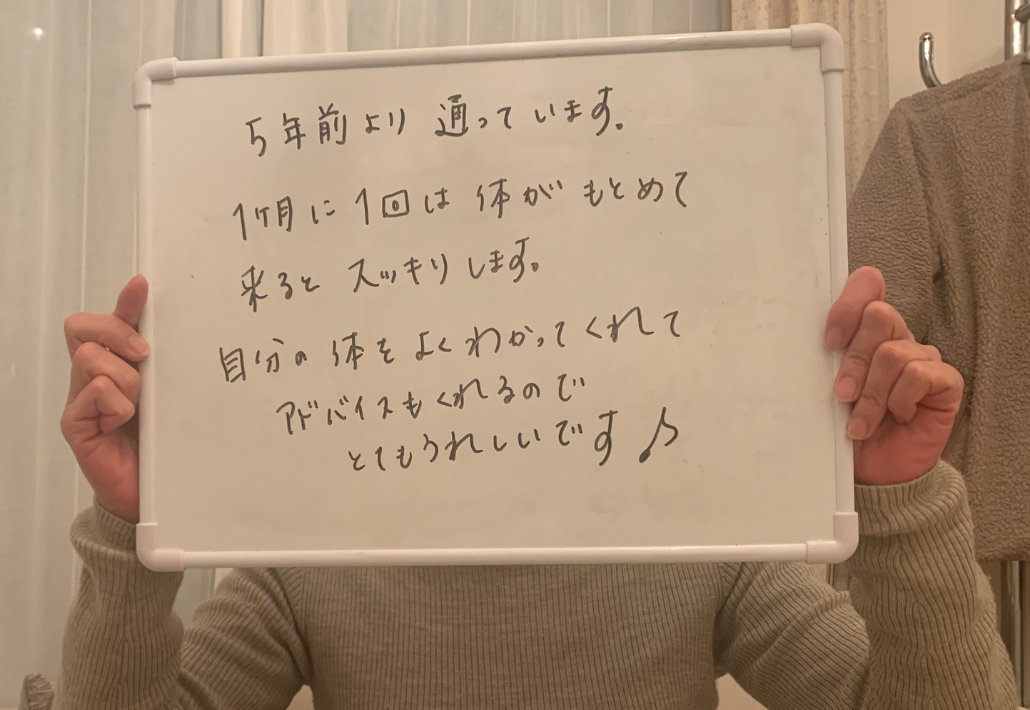 5年前より 通っています。
1ヶ月に 1回は 体が もとめて
来ると スッキリします。
自分の 体を よくわかってくれて
アドバイスもくれるので
とてもうれしいです♪